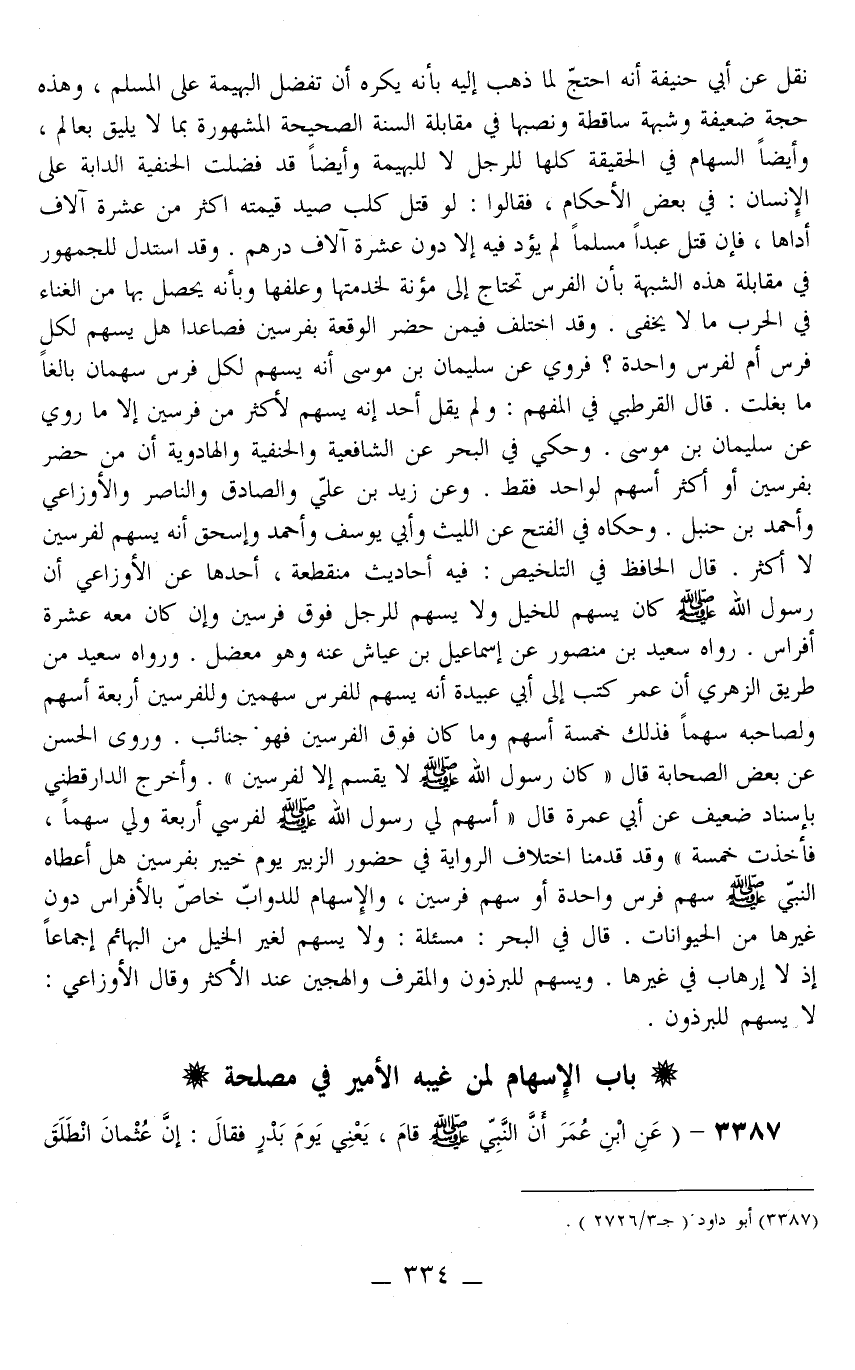 نقل عن أبي حنيفة أنه احتجّ لما ذهب إليه بأنه يكره أن تفضل البهيمة على المسلم ، وهذه
حجة ضعيفة وشبهة ساقطة ونصبها في مقابلة السنة الصحيحة المشهورة بما لا يليق بعالم ،
وأيضاً السهام في الحقيقة كلها للرجل لا للبهيمة وأيضاً قد فضلت الحنفية الدابة على
الإنسان : في بعض الأحكام ، فقالوا : لو قتل كلب صيد قيمته اكثر من عشرة آلاف
أداها ، فإن قتل عبداً مسلماً لم يؤد فيه إلا دون عشرة آلاف درهم . وقد استدل للجمهور
في مقابلة هذه الشبهة بأن الفرس تحتاج إلى مؤنة لخدمتها وعلفها وبأنه يحصل بها من الغناء
في الحرب ما لا يخفى . وقد اختلف فيمن حضر الوقعة بفرسين فصاعدا هل يسهم لكل
فرس أم لفرس واحدة ؟ فروي عن سليمان بن موسى أنه يسهم لكل فرس سهمان بالغاً
ما بغلت . قال القرطبي في المفهم : ولم يقل أحد إنه يسهم لأكثر من فرسين إلا ما روي
عن سليمان بن موسى . وحكي في البحر عن الشافعية والحنفية والهادوية أن من حضر
بفرسين أو أكثر أسهم لواحد فقط . وعن زيد بن عليّ والصادق والناصر والأوزاعي
وأحمد بن حنبل . وحكاه في الفتح عن الليث وأبي يوسف وأحمد وإسحق أنه يسهم لفرسين
لا أكثر . قال الحافظ في التلخيص : فيه أحاديث منقطعة ، أحدها عن الأوزاعي أن
رسول الله ﷺ كان يسهم للخيل ولا يسهم للرجل فوق فرسين وإن كان معه عشرة
أفراس . رواه سعيد بن منصور عن إسماعيل بن عياش عنه وهو معضل . ورواه سعيد من
طريق الزهري أن عمر كتب إلى أبي عبيدة أنه يسهم للفرس سهمين وللفرسين أربعة أسهم
ولصاحبه سهماً فذلك خمسة أسهم وما كان فوق الفرسين فهو جنائب . وروى الحسن
عن بعض الصحابة قال « كان رسول الله ﷺ لا يقسم إلا لفرسين » . وأخرج الدارقطني
بإسناد ضعيف عن أبي عمرة قال « أسهم لي رسول الله ﷺ لفرسي أربعة ولي سهماً ،
فأخذت خمسة » وقد قدمنا اختلاف الرواية في حضور الزبير يوم خيبر بفرسين هل أعطاه
النبيّ ﷺ سهم فرس واحدة أو سهم فرسين ، والإسهام للدوابّ خاصّ بالأفراس دون
غيرها من الحيوانات . قال في البحر : مسئلة : ولا يسهم لغير الخيل من البهائم إجماعاً
إذ لا إرهاب في غيرها . ويسهم للبرذون والمقرف والهجين عند الأكثر وقال الأوزاعي :
لا يسهم للبرذون .
باب الإسهام لمن غيبه الأمير في مصلحة
٣٣٨٧ – ( عَنِ ابْنِ عُمَرَ أَنَّ النَّبِيّ ﷺ قامَ ، يَعْنِي يَومَ بَدْرٍ فقالَ : إنَّ عُثْمانَ انْطَلَقَ
(٣٣٨٧) أبو داود ( جـ٢٧٢٦/٣ ) .
_ ٣٣٤ _